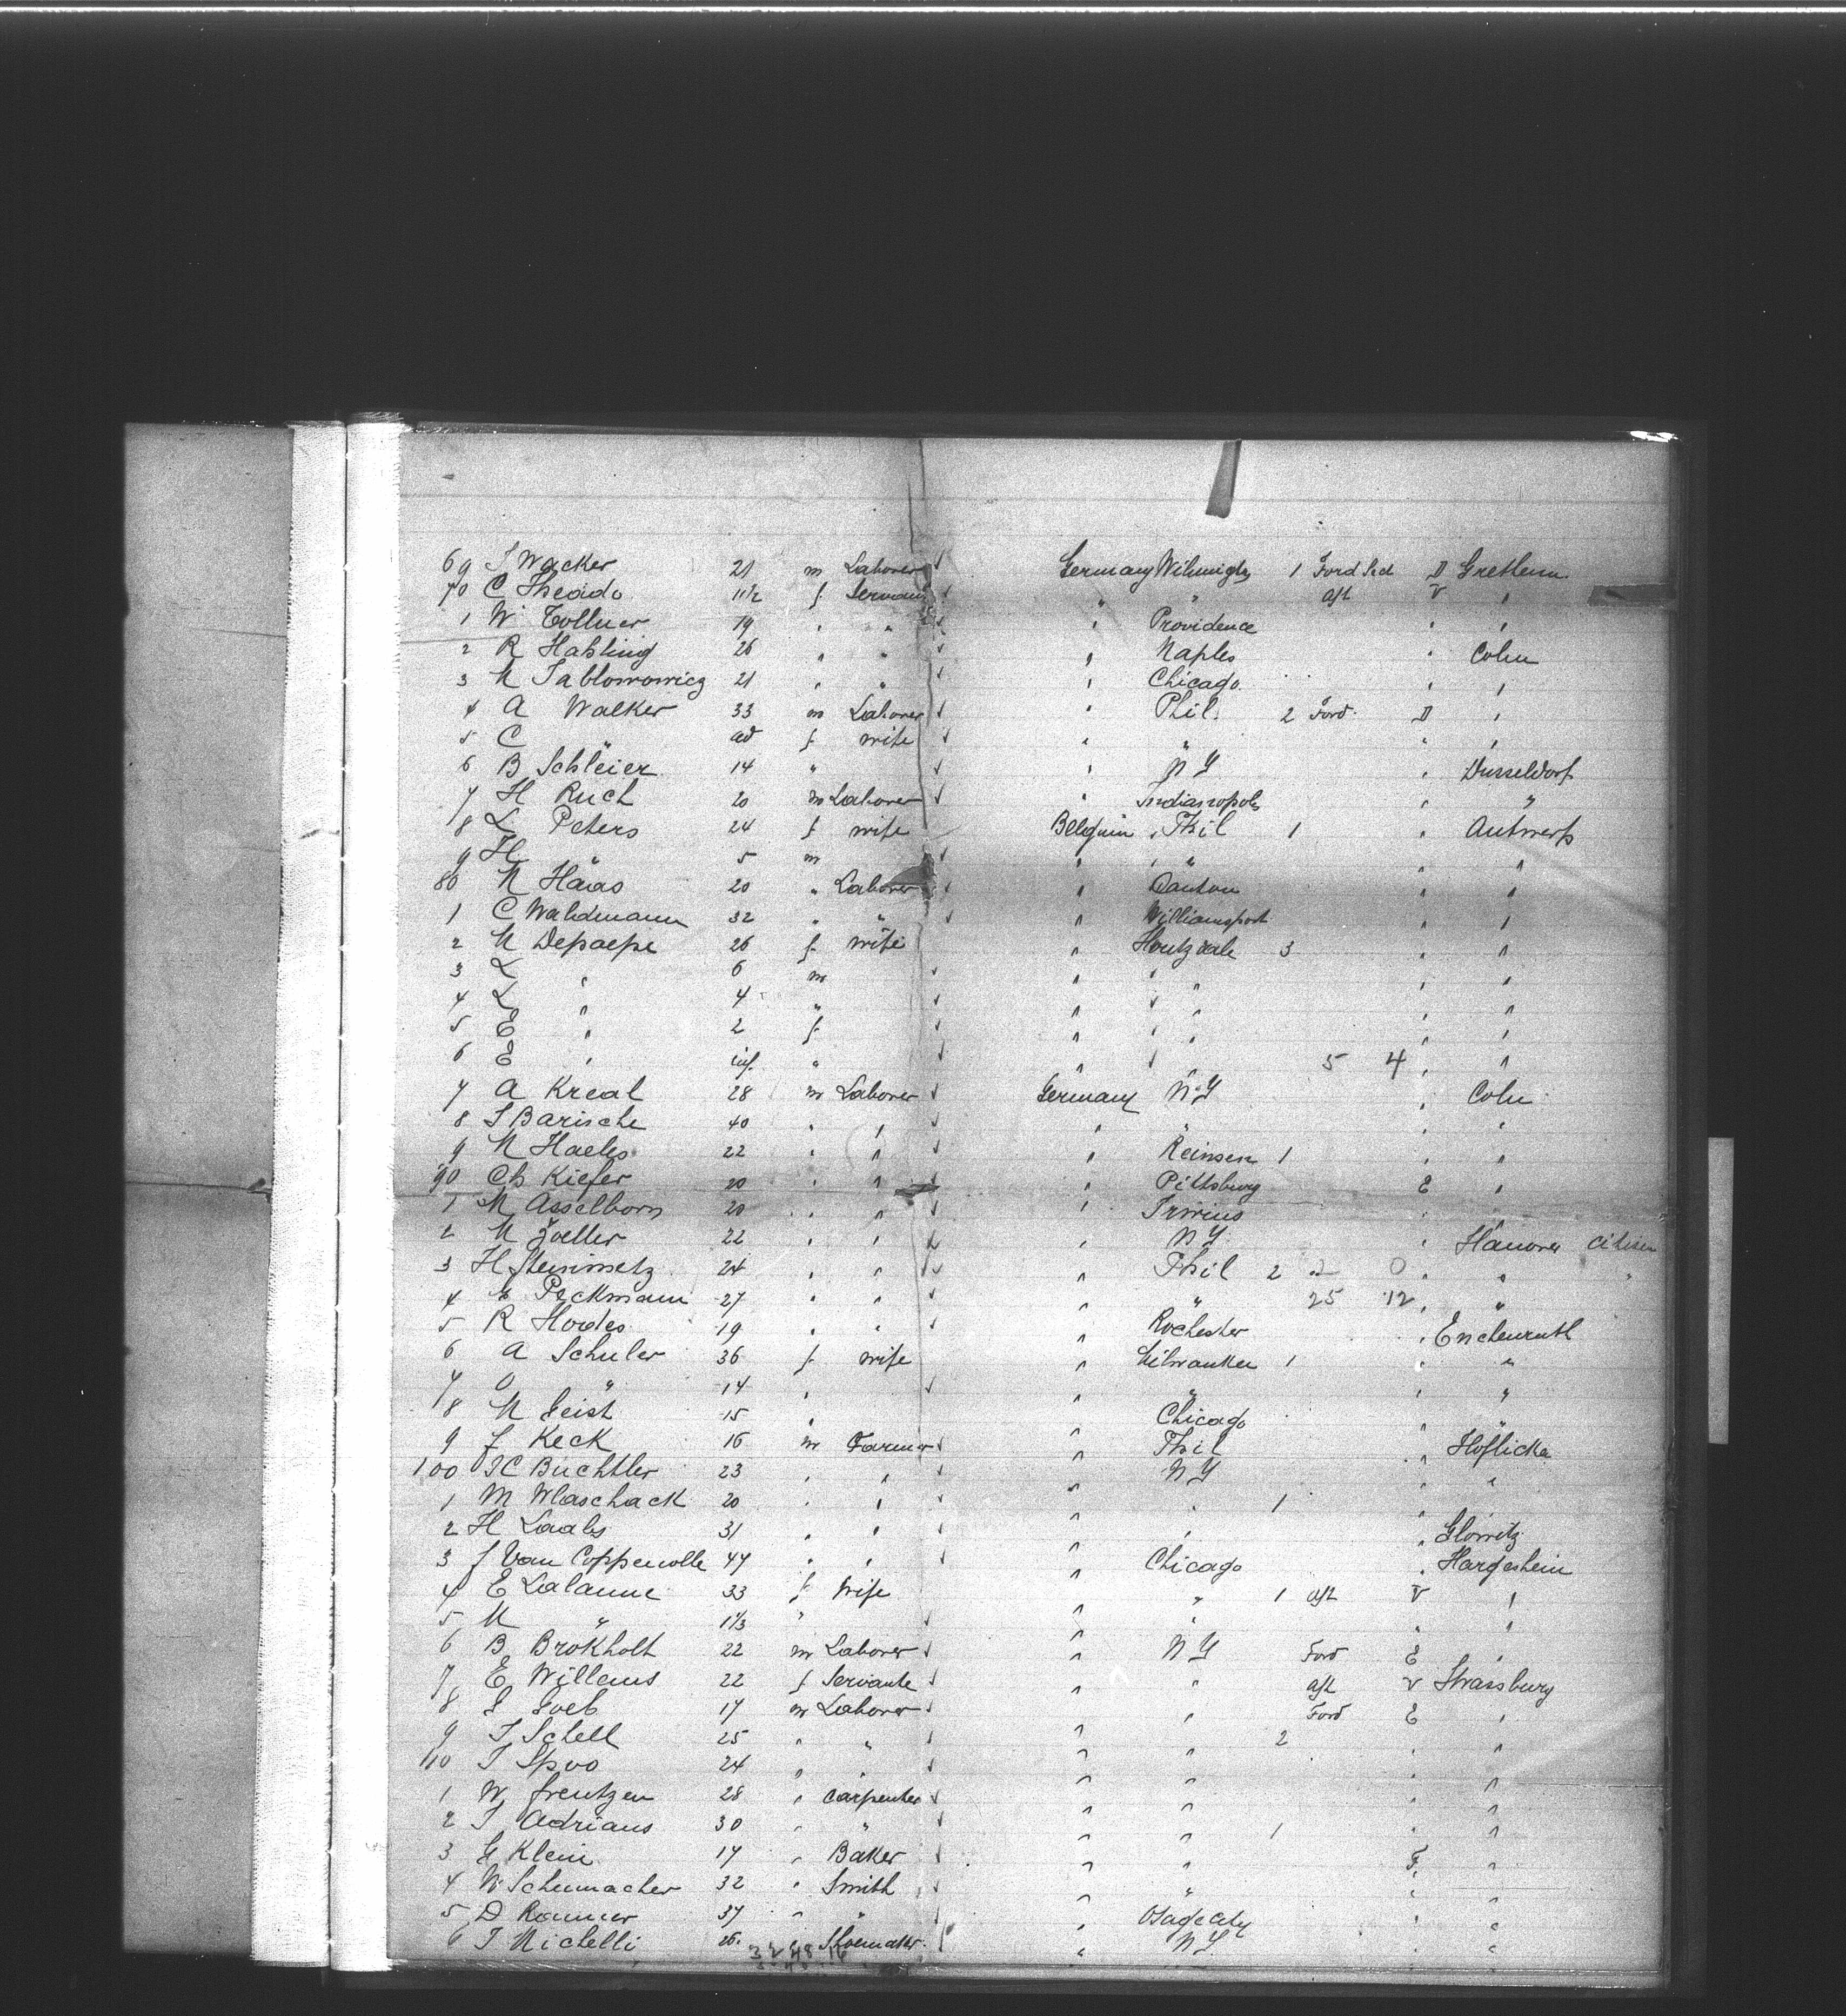 69 J Wacker 21 m Laborer ✓ Germany Wilmingt 1 Ford Sid D Gretlenn
70 C Theado 11½ f Servant ✓ " " aft V "
1 W Tollner 19 " " ✓ " Providence " "
2 R Habling 26 " " ✓ " Naples " Coln
3 M Jablonowicz 21 " " ✓ " Chicago " "
4 A Walker 33 m Laborer ✓ " Phil. 2 Ford D "
5 C " ad f wife ✓ " " " "
6 B Schleier 14 " ✓ " N Y " Dusseldorf
7 H Ruch 20 m Laborer ✓ " Indianopols " "
8 L Peters 24 f wife Belguim Phil 1 " Antwerp
9 H " 5 m ✓ " " " "
80 N Haas 20 " Laborer ✓ " Canton " "
1 C Waldmann 32 " " ✓ " Williamsport " "
2 M Depaepe 26 f wife " Houtzdale 3 " "
3 L " 6 m ✓ " " " "
4 L " 4 " ✓ " " " "
5 E " 2 f ✓ " " " "
6 E " inf. " ✓ " " 5 4 " "
7 A Kreal 28 m Laborer ✓ Germany N Y " Coln
8 J Barische 40 " " ✓ " " " "
9 N Haebs 22 " " ✓ " Reinsen 1 " "
90 Ch Kiefer 20 " " " Pittsburg E "
1 M Asselborn 20 " " ✓ " " "
2 N Zoeller 22 " " ✓ " N Y " Hanover Citisen
3 H Steinmetz 24 " " ✓ " Phil 2 " 2 0 " " "
4 Peckmann 27 " " ✓ " " 25 12 " "
5 R Hordes 19 " " ✓ " Rochester " Enchenreuth
6 A Schuler 36 f wife " Milwaukee 1 " "
7 O " 14 " ✓ " " " "
8 M Geist 15 " " Chicago " "
9 J Keck 16 m Farmer ✓ " Phil " Hoflicka
100 J C Buchtler 23 " " ✓ " N Y " "
1 M Wlaschack 20 " " ✓ " " 1 "
2 H Laabs 31 " " ✓ " " " Glowitz
3 J Van Coppenolle 47 " " ✓ " Chicago " Hargeshein
4 E Lalanne 33 f Wife " " 1 aft V "
5 M " 1⅓ " ✓ " " " "
6 B Brokholt 22 m Laborer ✓ " N Y Ford E "
7 E Willems 22 f Servante ✓ " " aft V Strassburg
8 J Goeb 17 m Laborer ✓ " " Ford E "
9 J Schell 25 " " ✓ " 2 " "
110 J Spoo 24 " " ✓ " " " "
1 W Freutzen 28 " Carpenter ✓ " " " "
2 J Adrians 30 " " ✓ " " 1 " "
3 G Klein 17 " Baker ✓ " " F. "
4 W Schumacher 32 " Smith ✓ " " " "
5 D Rommer 37 " " ✓ " Osage City " "
6 J Nichelli 26 " Shoemaker " N Y " "
32 48 16